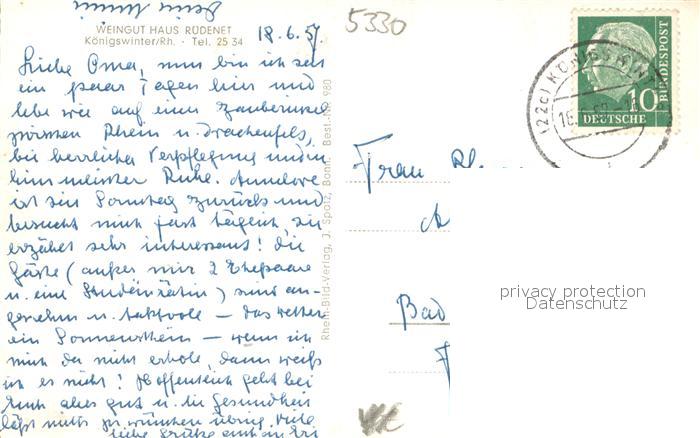 WEINGUT HAUS RÜDENET
Königswinter/Rh. · Tel. 25 34
18.6.57.
Liebe Oma, nun bin ich seit
ein paar Tagen hier und
lebe wie auf einer Zauberinsel
zwischen Rhein u. Drachenfels,
bei herrlicher Verpflegung und in
himmlischer Ruhe. Annelore
ist seit Sonntag zurück und
besucht mich fast täglich, sie
erzählt sehr interessant! Die
Gäste (außer mir 2 Ehepaare
u. eine Studienrätin) sind an-
genehm u. taktvoll – das Wetter
ein Sonnen – wenn ich
mich da nicht erhole, dann weiß
ich es nicht! Hoffentlich geht bei
Euch alles gut u. die Gesundheit
läßt nichts zu wünschen übrig. Viele
liebe Grüße auch an
Rhein-Bild-Verlag, J. Spatz, Bonn. Best.-Nr. 980
5330
(22c) KÖNIGSWIN
10
DEUTSCHE
BUNDESPOST
Frau
Bad
privacy protection
Datenschutz